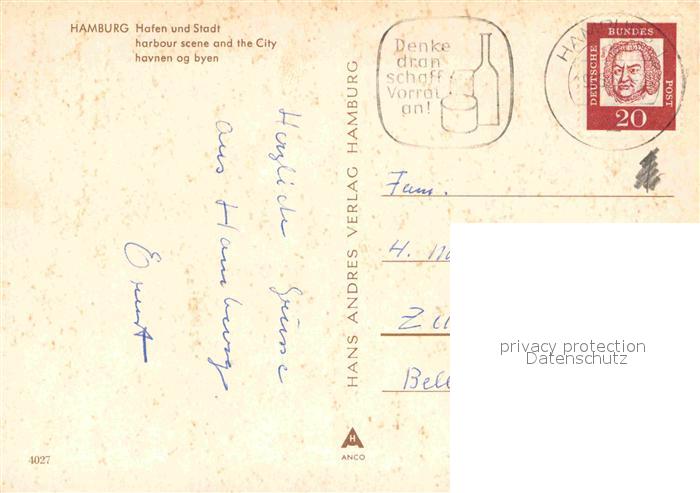 HAMBURG Hafen und Stadt
harbour scene and the City
havnen og byen
Denke
dran
schaff
Vorrat
an!
HAMBURG
DEUTSCHE BUNDES POST
20
Herzliche Grüsse
aus Hamburg.
Ernst
HANS ANDRES VERLAG HAMBURG
Fam.
H.
Zü
Bell
privacy protection
Datenschutz
H
ANCO
4027